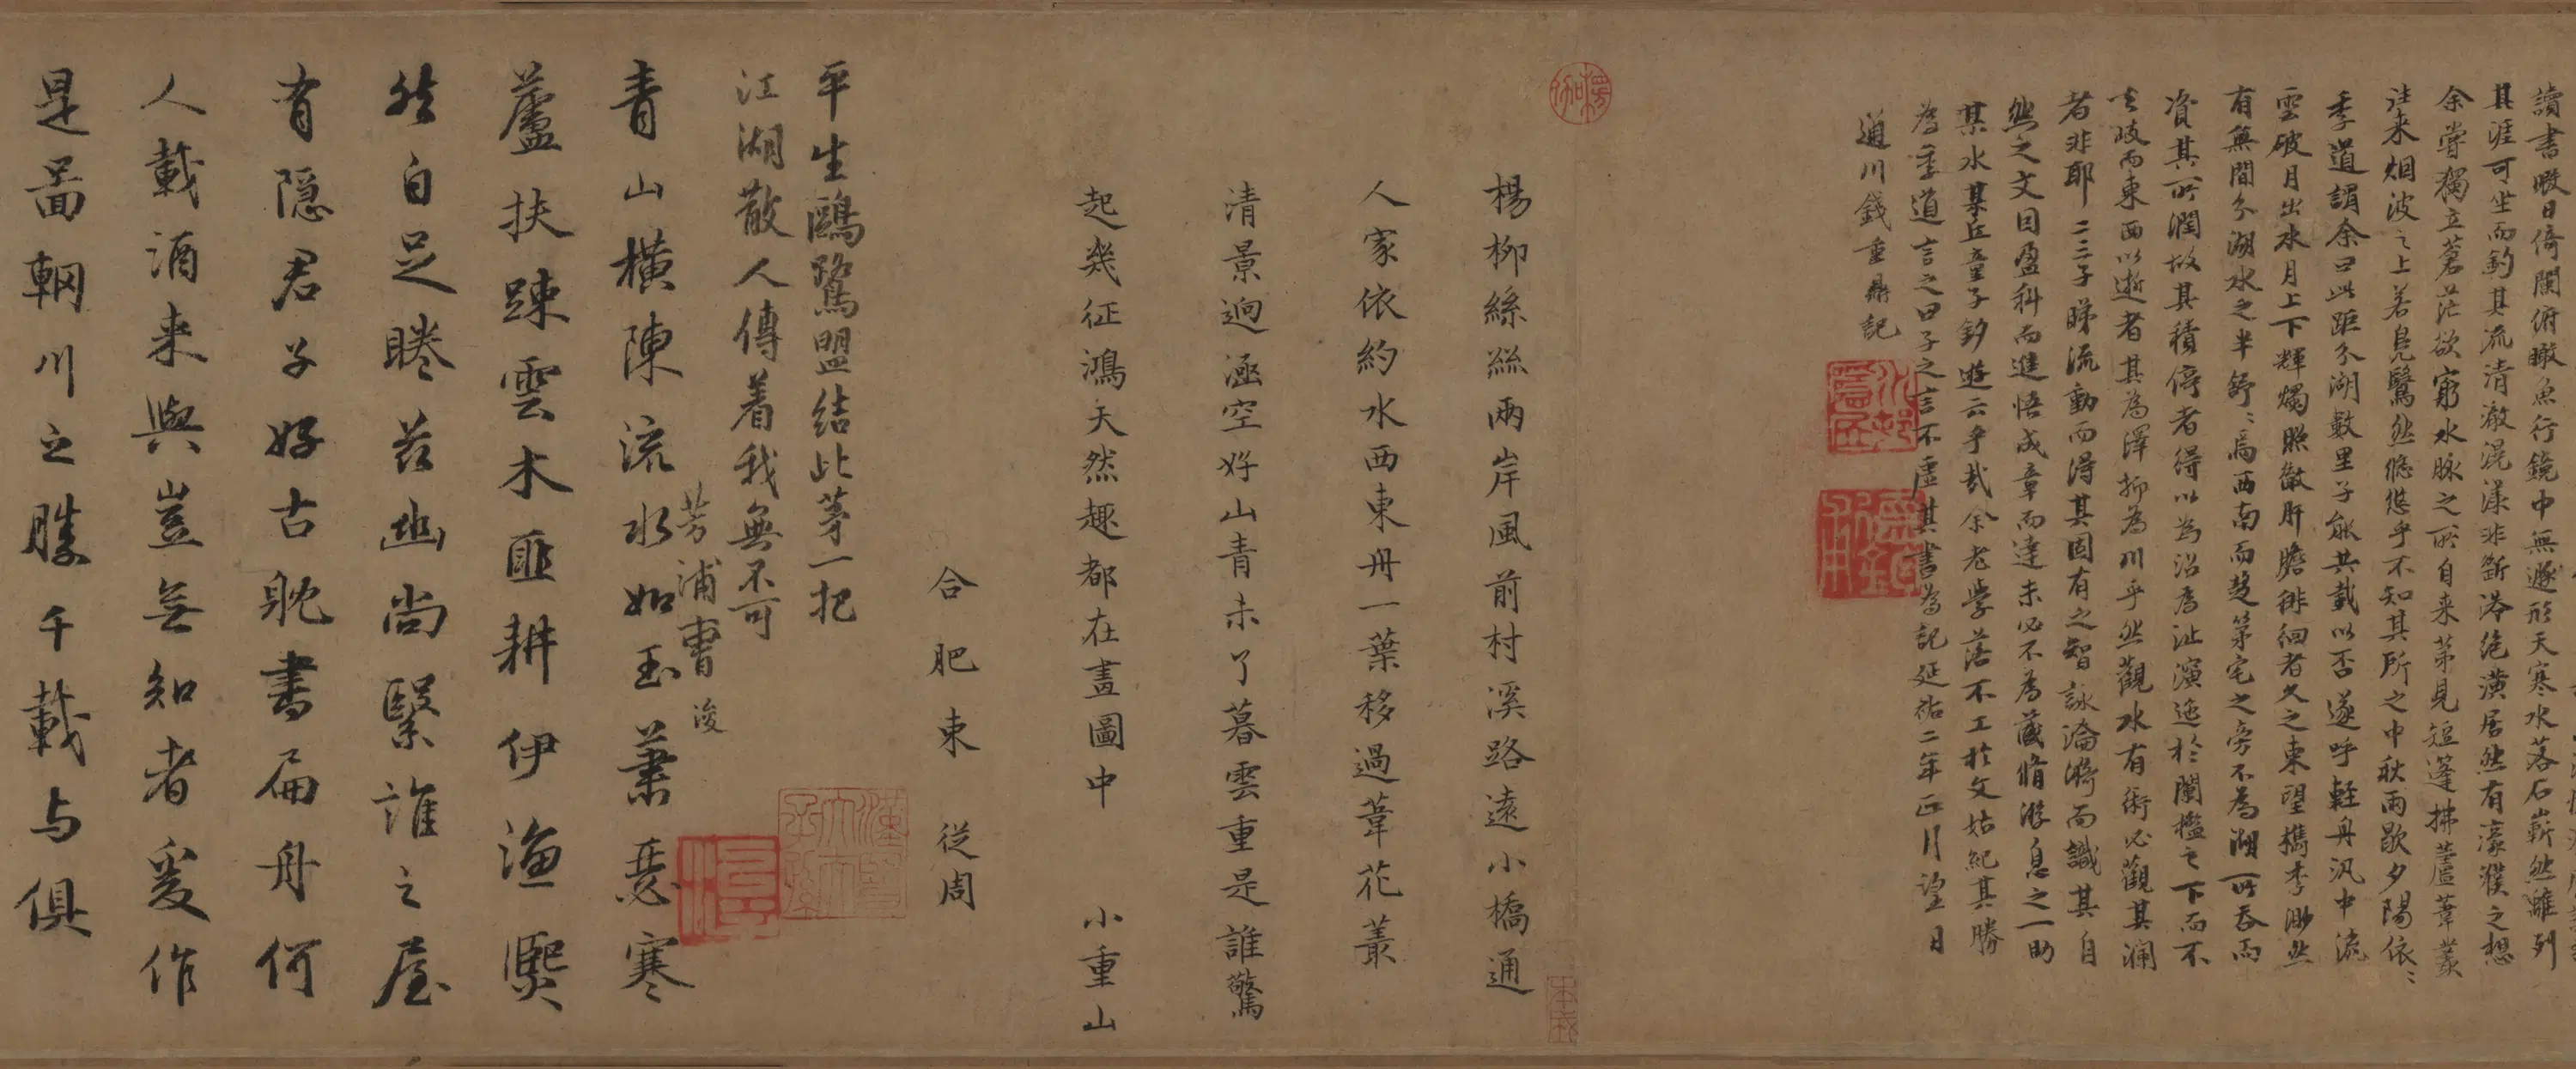 讀書暇日倚闌俯瞰魚行鏡中無遯形天寒水落石嶄然雖列
其涯可坐而釣其流清澈滉漾非斷港絶潢居然有濠濮之想
余嘗獨立蒼茫欲窮水脉之所自来苐見短篷拂蘆葦叢
往来烟波之上若鳧鷖然悠悠乎不知其所之中秋雨歇夕陽依〻
季道謂余曰此距分湖數里子能共載以否遂呼輕舟汎中流
雲破月出水月上下輝燭照徹肝膽徘徊者久之東望檇李渺然
有無間分湖水之半舒〻焉西南而楚第宅之旁不為湖所吞而
資其所潤故其積停者得以為沼為沚演迤於闌檻之下而不
知
者非耶二三子睇流動而得其固有之智詠淪漪而識其自
然之文目盈科而進悟成章而達未必不為藏脩游息之一助
某水某丘童子釣遊云乎哉余老學落不工於文姑紀其勝
為季道言之曰子之言不虛其書為記延祐二年正月望日
通川錢重鼎記
楊柳絲絲兩岸風前村溪路遠小橋通
人家依約水西東舟一葉移過葦花叢
清景迥涵空好山青未了暮雲重是誰驚
起幾征鴻天然趣都在畫圖中 小重山
合肥束從周
平生鷗鷺盟結此茅一把
江湖散人傳着我無不可
芳浦曹浚
青山橫陳流水如玉葉悬寒
蘆扶踈雲木匪耕伊漁熙
然自足睠茲幽尚緊誰之屋
有隱君子好古躭書扁舟何
人載酒来與豈無知者爰作
是啚輞川之勝千載与俱